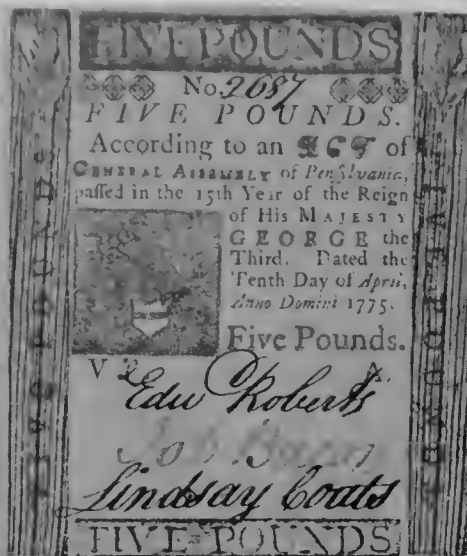 FIVE POUNDS
No. 2687
FIVE POUNDS.
According to an ACT of
GENERAL ASSEMBLY of Penſylvania,
paſſed in the 15th Year of the Reign
of His MAJESTY
GEORGE the
Third. Dated the
Tenth Day of April,
Anno Domini 1775.
Five Pounds.
Edw Roberts
Lindsay Coats
FIVE POUNDS